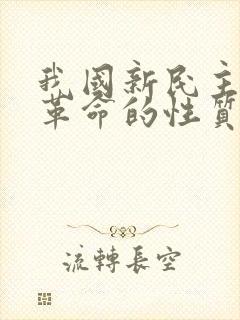 我國新民主
革命的性質
流轉長空